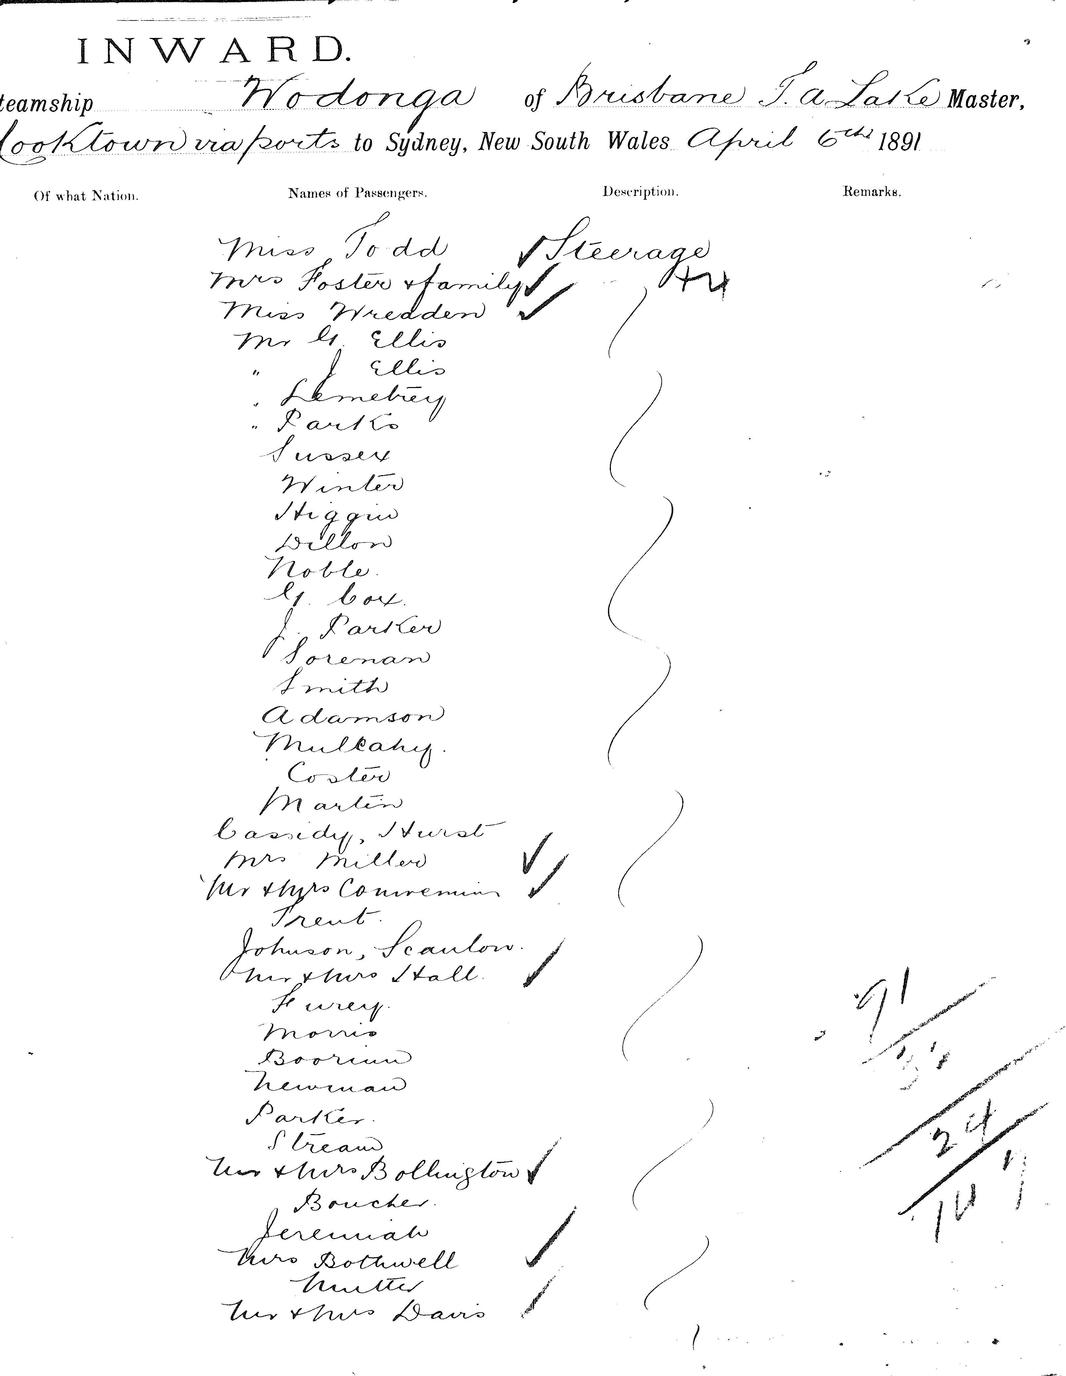 INWARD.
teamship Wodonga of Brisbane T. A Lake Master,
Cooktown via ports to Sydney, New South Wales April 6th 1891
Of what Nation. Names of Passengers. Description. Remarks.
Miss Todd Steerage
Mrs Foster & family +4
Miss Wreaden
Mr G. Ellis
" J Ellis
" Lemetrey
" Parks
Sussex
Winter
Higgin
Dillon
Noble.
G. Cox.
J. Parker
Sorenan
Smith
Adamson
Mulcahy.
Coster
Martin
Cassidy, Hurst
Mrs Miller
Mr & Mrs
Trent.
Johnson, Scanlon.
Mr & Mrs Hall.
Furey.
Morris
91
Newman
Parker.
24
Stream
Mr & Mrs Bollington
147
Boucher.
Jeremiah
Mrs Bothwell
Nutter
Mr & Mrs Davis